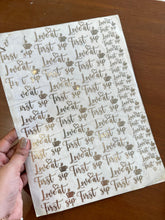 Love at Love at Love at Love at
First sip First sip First sip First sip
Love at Love at Love at Love at
First sip First sip First sip First sip
Love at Love at Love at Love at
First sip First sip First sip First sip
Love at Love at Love at Love at
First sip First sip First sip First sip
Love at Love at Love at Love at
First sip First sip First sip First sip
Love at Love at Love at Love at
First sip First sip First sip First sip
Love at Love at Love at Love at
First sip First sip First sip First sip